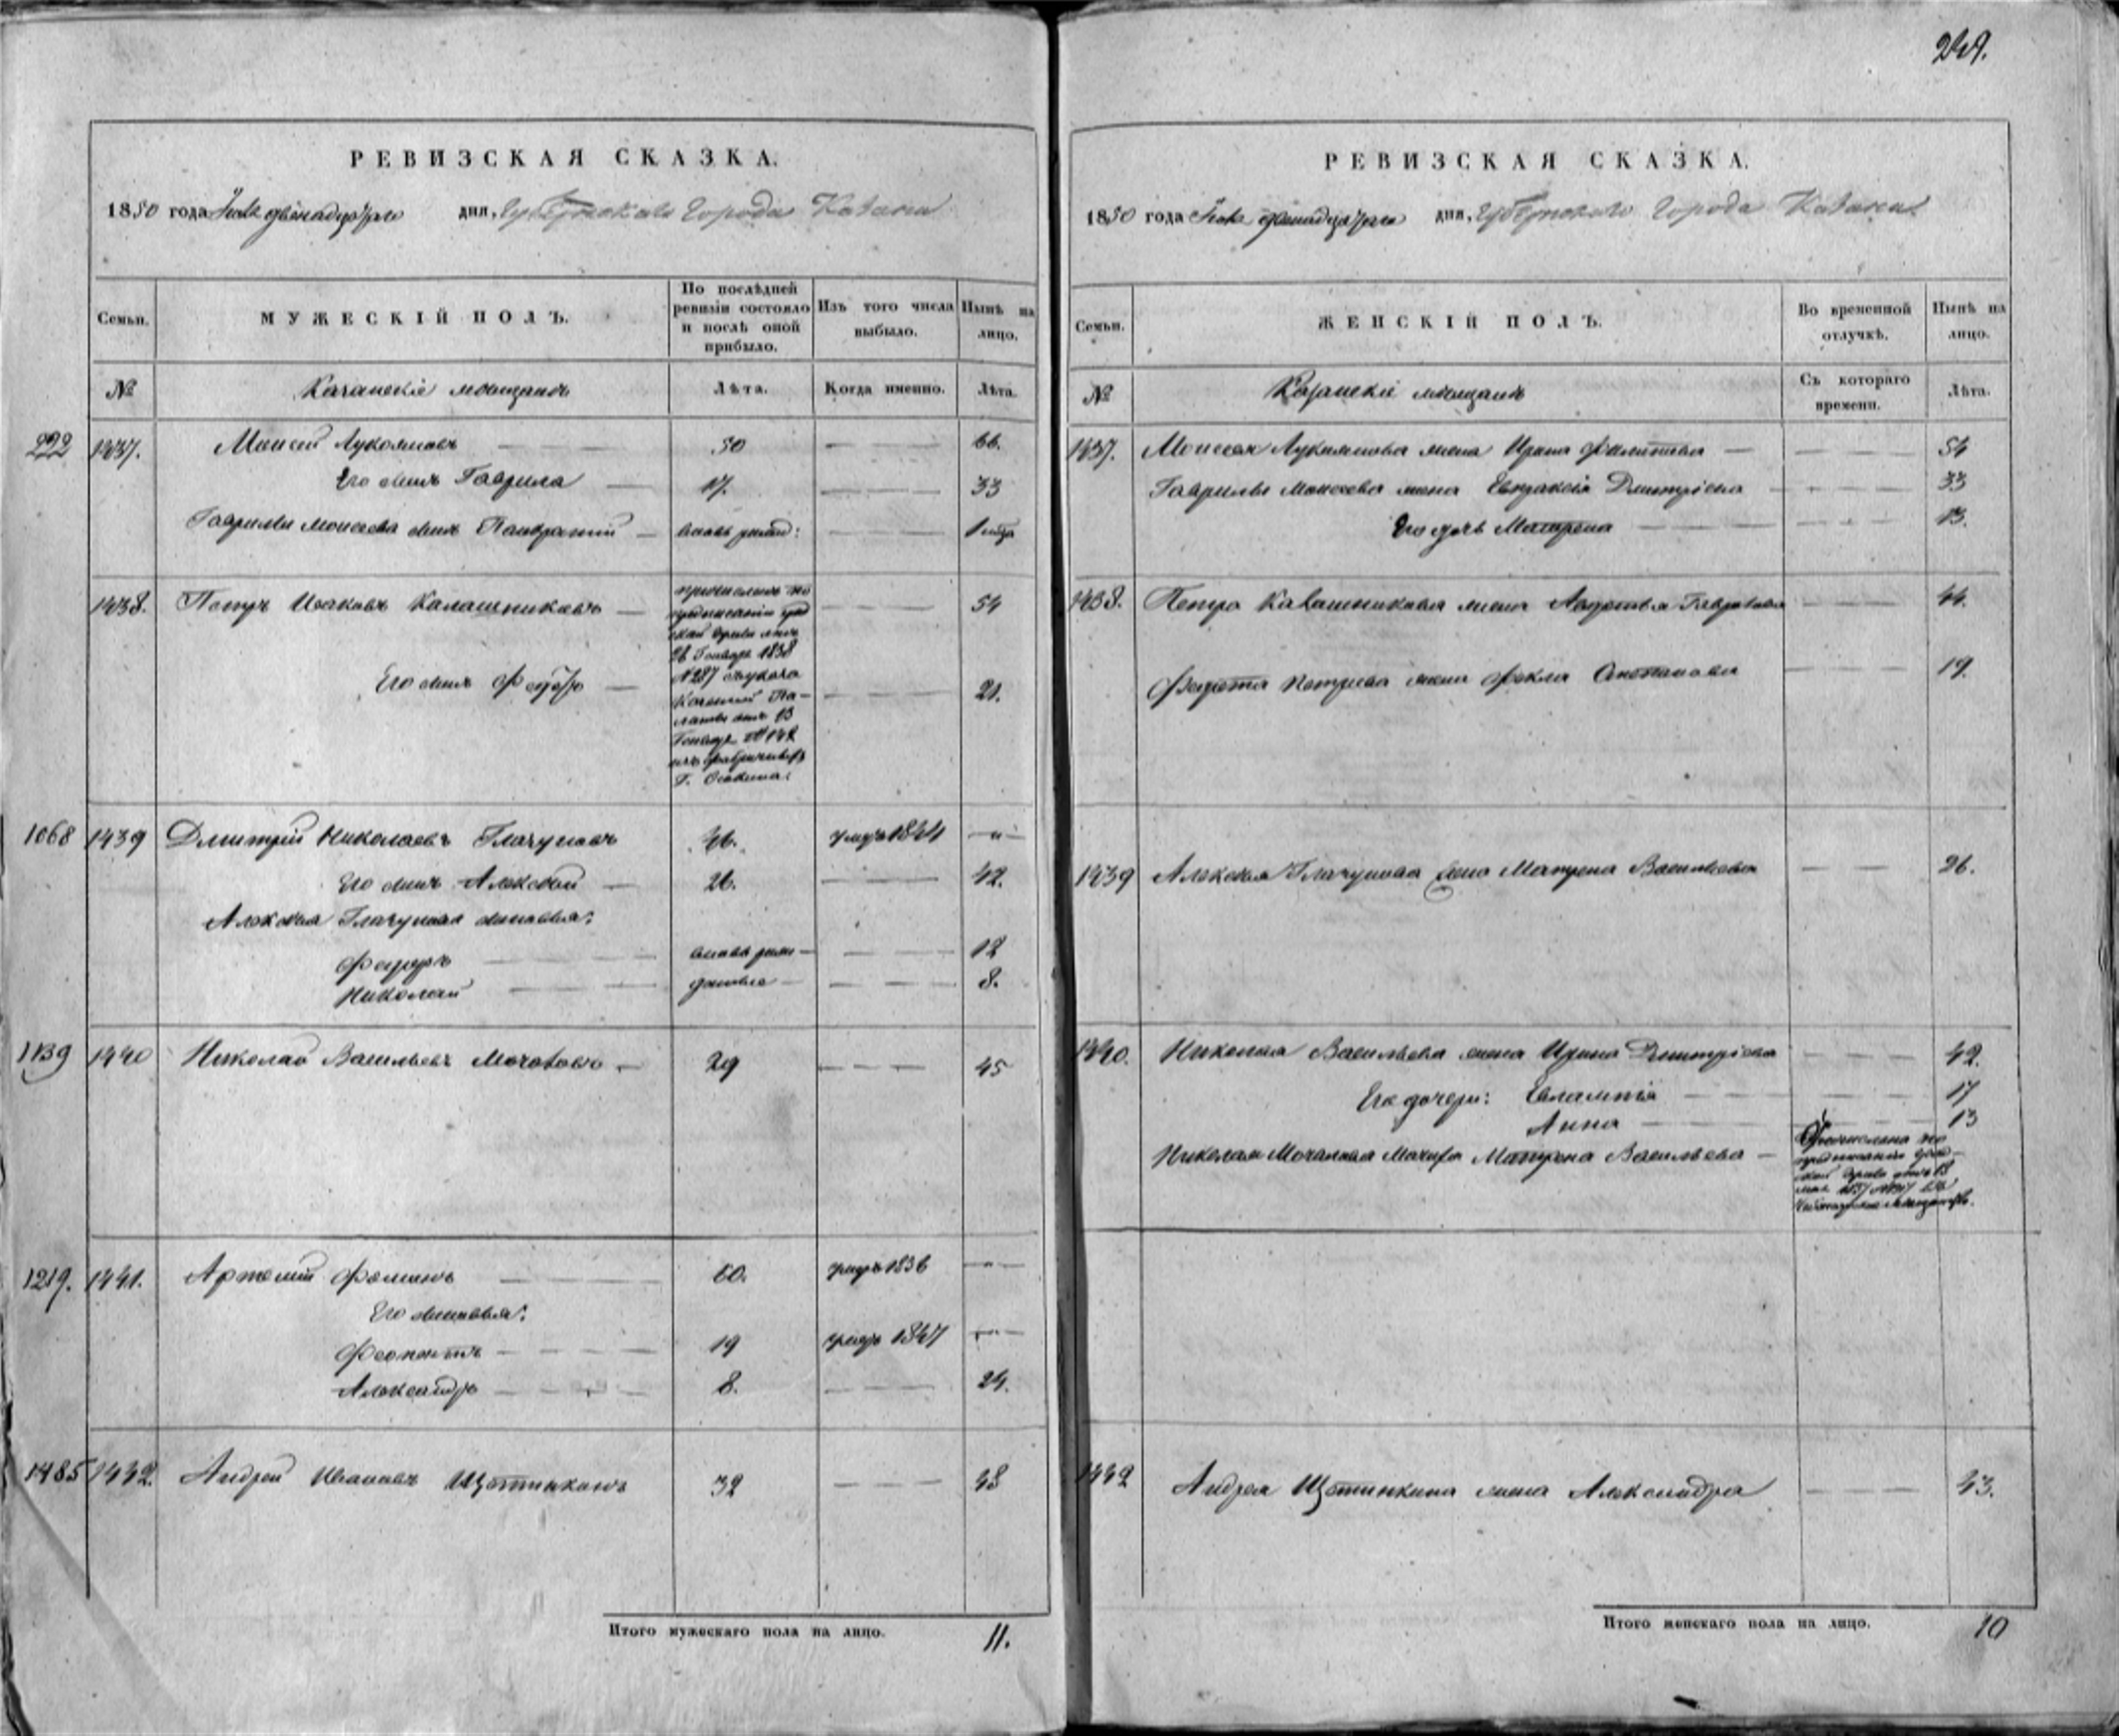 249.
РЕВИЗСКАЯ СКАЗКА.
1850 года двенадцатаго дня, Губернскаго Города Казани
Семьи. МУЖЕСКІЙ ПОЛЪ. По послѣдней ревизіи состояло и послѣ оной прибыло. Изъ того числа выбыло. Нынѣ на лицо.
№ Казанскіе мѣщане Лѣта. Когда именно. Лѣта.
222 1437. Моисей Лукояновъ 50 66.
Его сынъ Гаврила 17. 33
Гаврилы Моисеева сынъ Панкратій вновь рожд: 1 года
1438. Петръ Исаковъ Калашниковъ 54
причисленъ по
предписанію
26 Генваря 1838
№ 287 указа
Его сынъ Федотъ 21.
Казенной Па-
латы отъ 13
Генваря № 142
изъ фабричныхъ
Г. Осокина.
1068 1439 Дмитрій Николаевъ Глазуновъ 46. умеръ 1844 — „ —
Его сынъ Алексѣй 26. 42.
Алексѣя Глазунова сыновья:
Федоръ вновь рож- 12
Николай денные 8.
1139 1440 Николай Васильевъ Мочаловъ 29 45
1219. 1441. Артемій Фоминъ 60. умеръ 1836 — „ —
Его сыновья:
Феопентъ 19 умеръ 1847 — „ —
Александръ 8. 24.
1485 1442. Андрей Ивановъ Щетинкинъ 32 48
Итого мужескаго пола на лицо. 11.
РЕВИЗСКАЯ СКАЗКА.
1850 года двенадцатаго дня, Губернскаго Города Казани
Семьи. ЖЕНСКІЙ ПОЛЪ. Во временной отлучкѣ. Нынѣ на лицо.
№ Казанскіе мѣщане Съ котораго времени. Лѣта.
1437. Моисея Лукоянова жена Ирина Филипова 54
Гаврилы Моисеева жена Евпраксія Дмитріева 33
Его дочь Матрена 13.
1438. Петра Калашникова жена Авдотья Гаврилова 44.
Федота Петрова жена Фекла Степанова 19.
1439 Алексѣя Глазунова жена Матрена Васильева 26.
1440. Николая Васильева жена Ирина Дмитріева 42.
Его дочери: Евлампія 17
Анна 13
Николая Мочалова Мачиха Матрена Васильева
причислена по
предписанію
1442 Андрея Щетинкина жена Александра 43.
Итого женскаго пола на лицо. 10